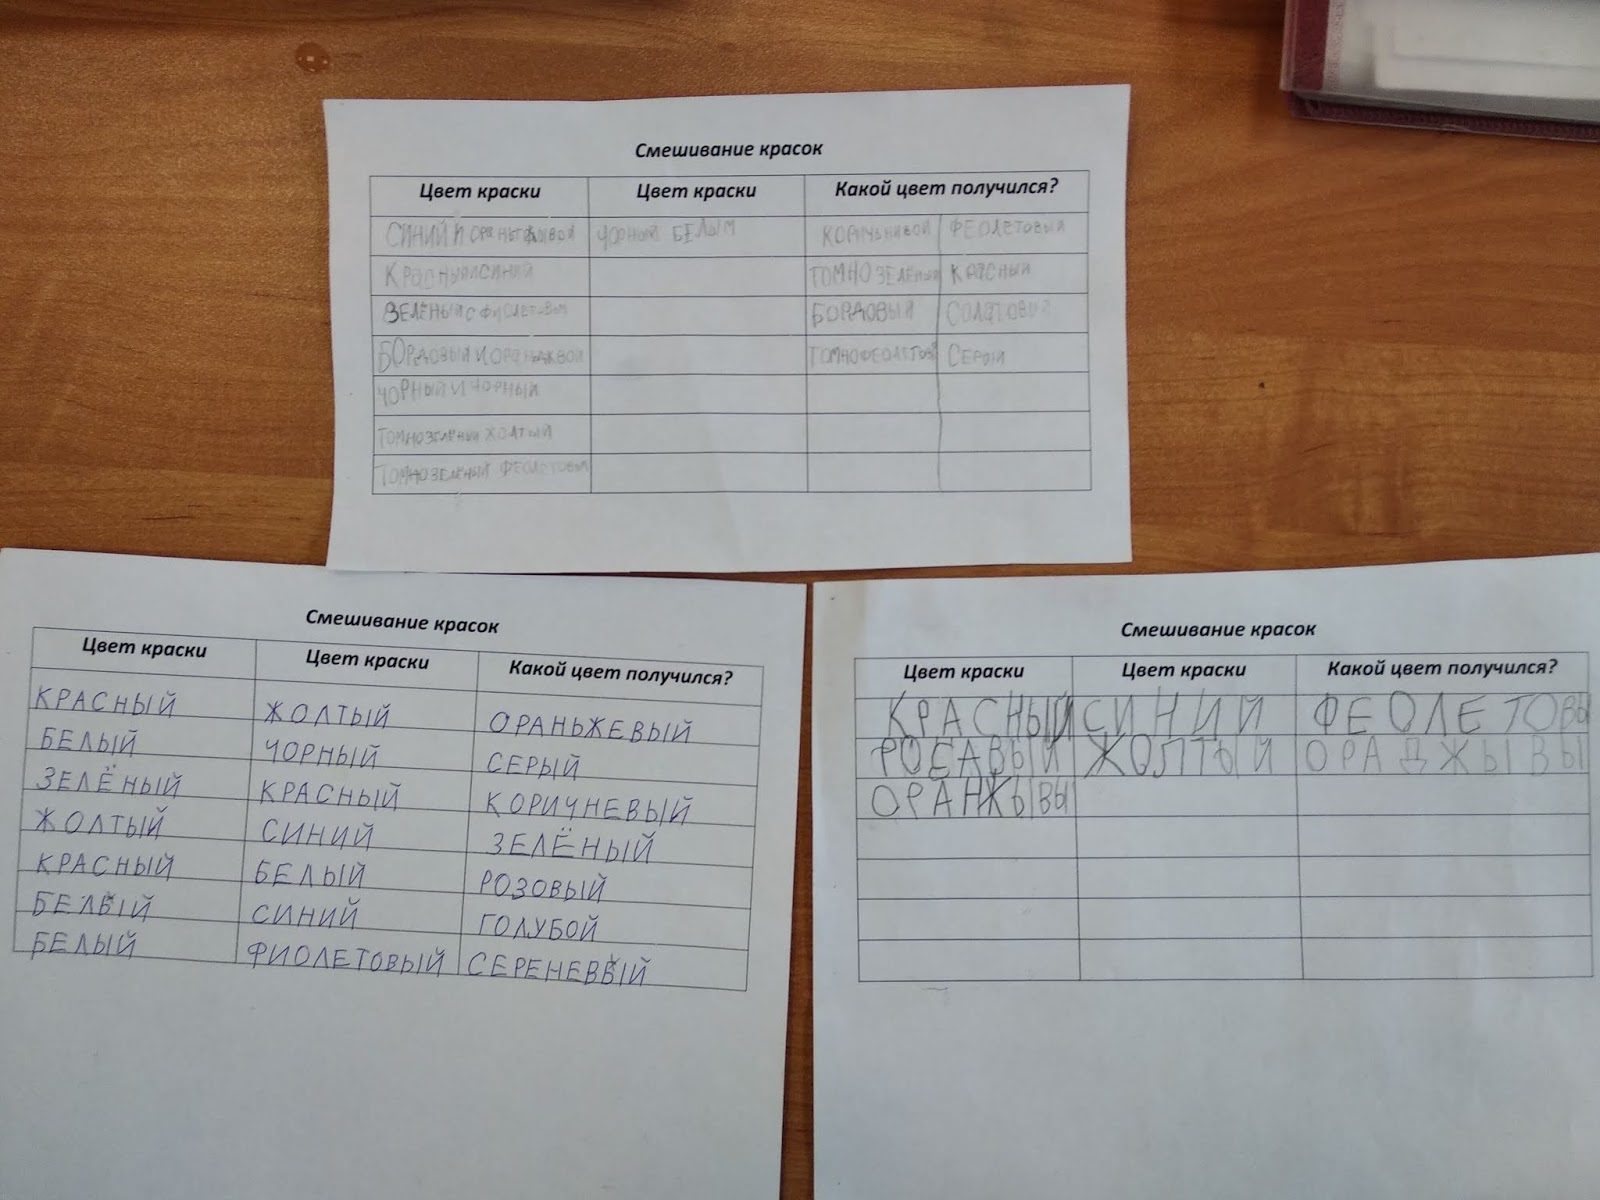 Смешивание красок
Цвет краски Цвет краски Какой цвет получился?
СИНИЙ И ЧОРНЫЙ БЕЛЫМ ФЕОЛЕТОВЫЙ
КРАСНЫЙ СИНИЙ ТОМНОЗЕЛЁНЫЙ КРАСНЫЙ
ЗЕЛЁНЫЙ С БОРДОВЫЙ
БОРДОВЫЙ И ТОМНОФЕОЛЕТОВЫЙ СЕРЫЙ
ЧОРНЫЙ И ЧОРНЫЙ
ТОМНОЗЕЛЁНЫЙ ЖОЛТЫЙ
ТОМНОЗЕЛЁНЫЙ ФЕОЛЕТОВЫЙ
Смешивание красок
Цвет краски Цвет краски Какой цвет получился?
КРАСНЫЙ ЖОЛТЫЙ ОРАНЬЖЕВЫЙ
БЕЛЫЙ ЧОРНЫЙ СЕРЫЙ
ЗЕЛЁНЫЙ КРАСНЫЙ КОРИЧНЕВЫЙ
ЖОЛТЫЙ СИНИЙ ЗЕЛЁНЫЙ
КРАСНЫЙ БЕЛЫЙ РОЗОВЫЙ
БЕЛЫЙ СИНИЙ ГОЛУБОЙ
БЕЛЫЙ ФИОЛЕТОВЫЙ СЕРЕНЕВЫЙ
Смешивание красок
Цвет краски Цвет краски Какой цвет получился?
КРАСНЫЙ СИНИЙ ФЕОЛЕТОВЫ
РОСАВЫЙ ЖОЛТЫЙ ОРАДЖЫВЫ
ОРАНЖЫВЫ